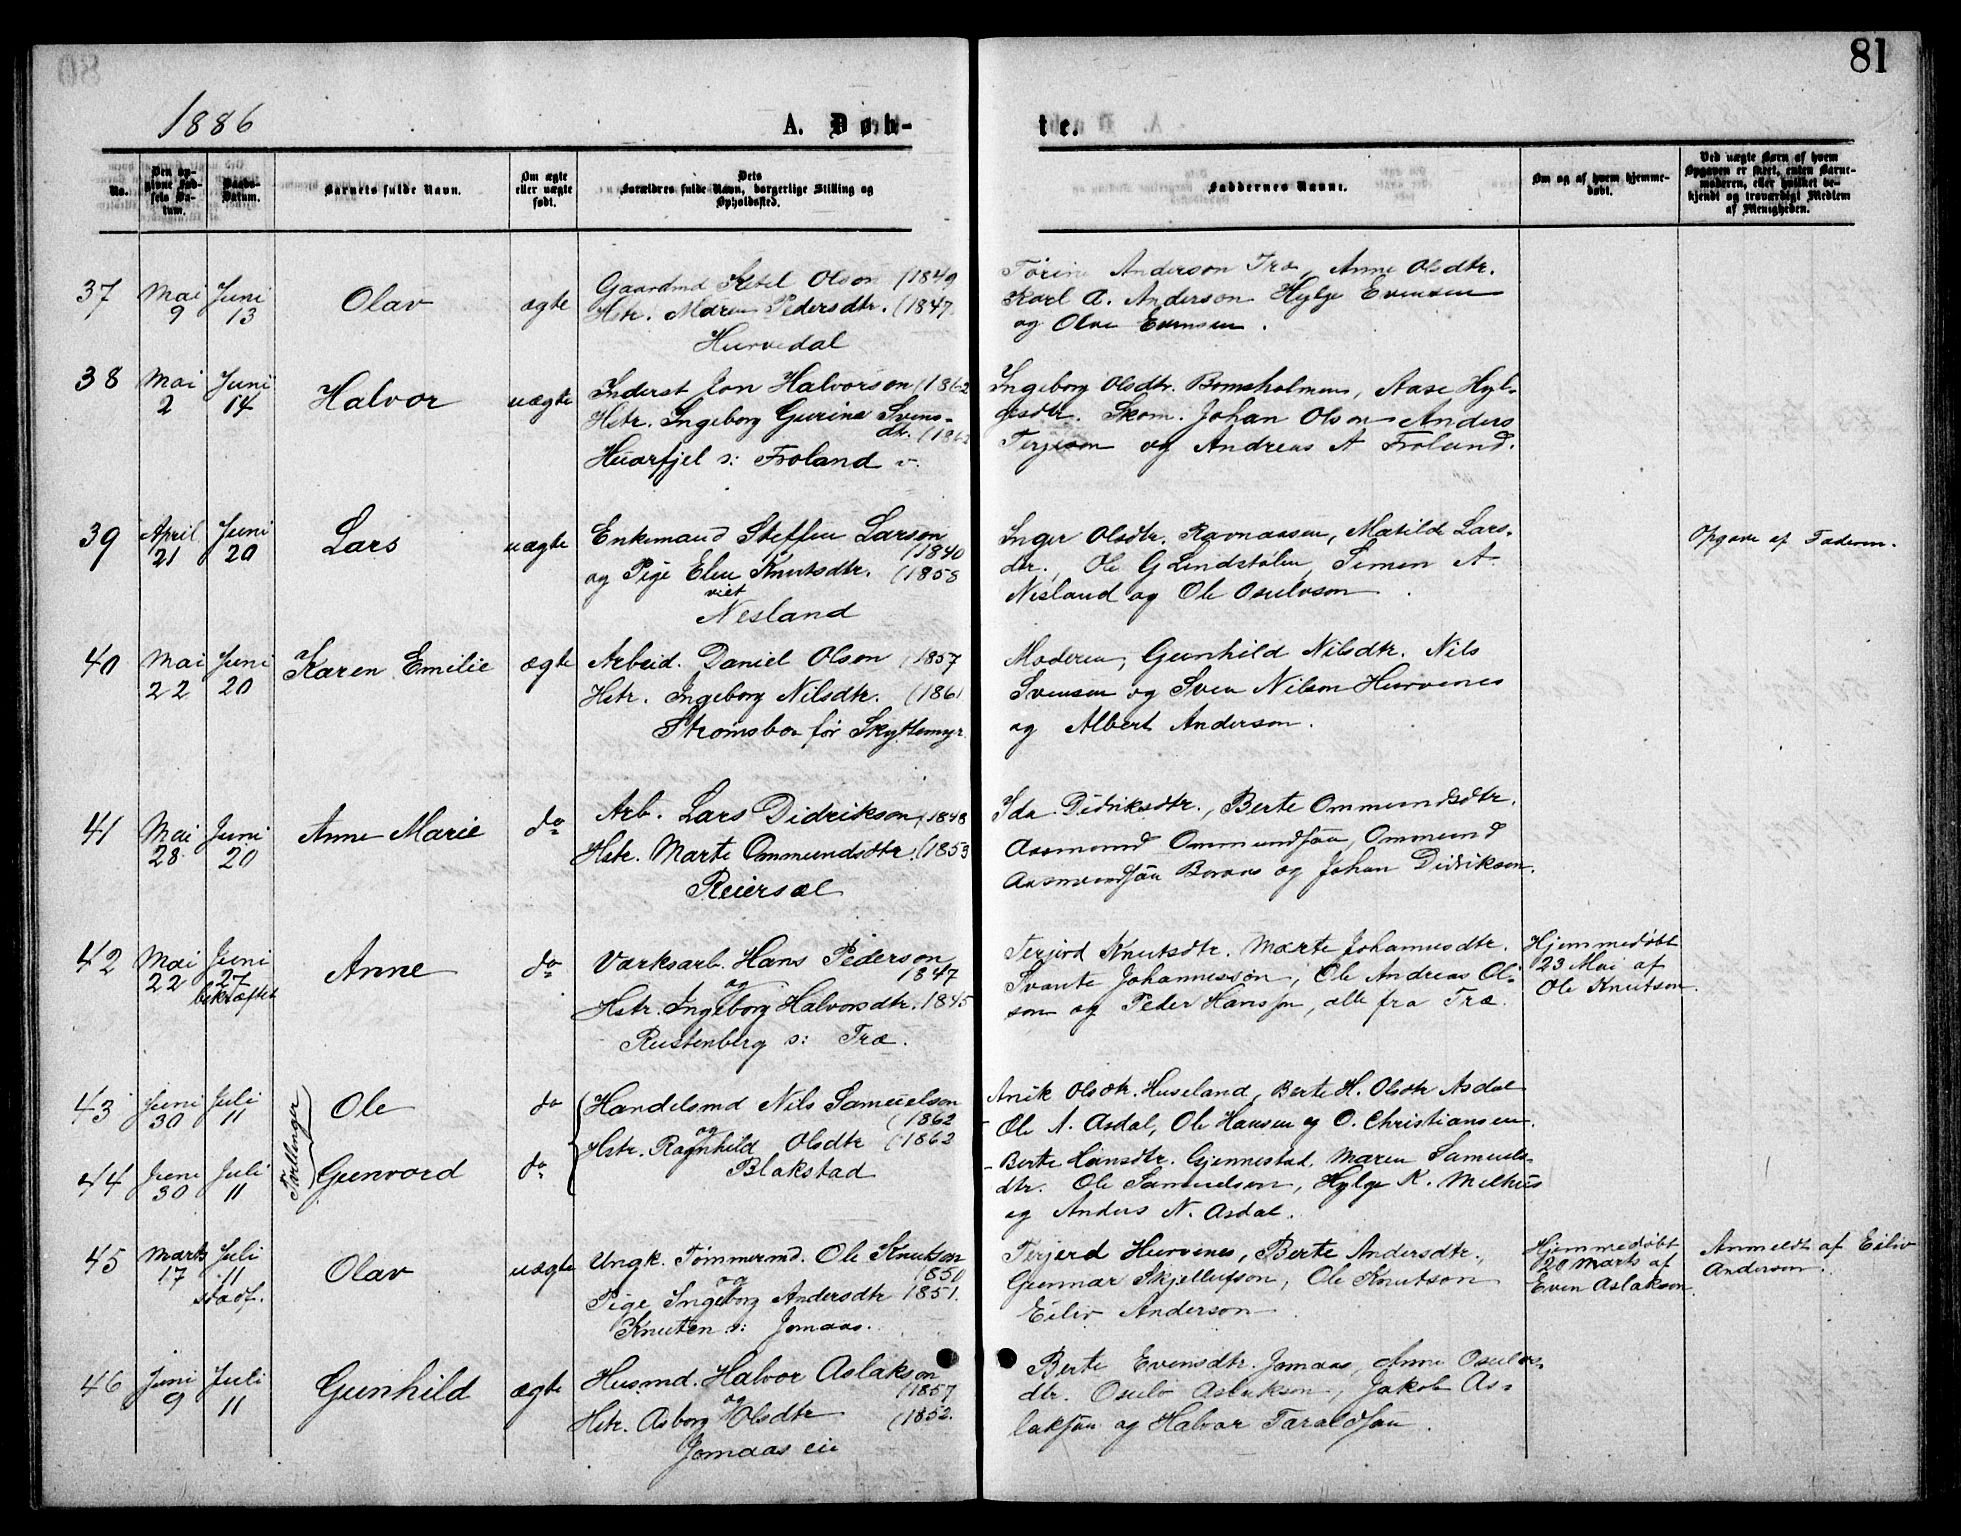 81
1886
A. Døb-
te.
No.
Den op-
givne Fød-
sels Da-
tum.
Daabs-
Datum.
Barnets fulde Navn.
Om ægte
eller uægte
født.
Dets
Forældres fulde Navn, borgerlige Stilling og
Opholdssted.
Faddernes Navne.
Om og af hvem hjemme-
døbt.
Ved uægte Børn af hvem
Opgaven er skeet, enten Barne-
moderen, eller hvilket be-
kjendt og troværdigt Medlem
af Menigheden.
37 Mai 9 Juni 13 Olav ægte
Gaardmd Ketel Olson (1849
Hstr. Maren Pedersdtr. (1847
Hurvedal
Torine Anderson Træ, Anne Olsdtr.
Karl A. Anderson Hylge Evensen
og Olav Evensen.
38 Mai 2 Juni 14 Halvor uægte
Inderst Jon Halvorson (1862
Hstr. Ingeborg Gurine Svens-
dtr. (186
Huarfjel s: Froland v.
Ingeborg Olsdtr. Bomsholmen, Aase Hyl-
gesdtr. Skom. Johan Olson Anders
Terjeson og Andreas A Froland.
39 April 21 Juni 20 Lars uægte
Enkemand Steffen Larson
(1840
og Pige Elen Knutsdtr. (1858
viet
Nesland
Inger Olsdtr. Ravnaasen, Matilde Lars-
dtr., Ole G Lindstølen, Simen A.
Nesland og Ole Osulvson
Opgave af Faderen.
40 Mai 22 Juni 20 Karen Emilie ægte
Arbeid. Daniel Olson (1857
Hstr. Ingeborg Nilsdtr. (1861
Strømsbo før Skyttemyr
Moderen, Gunhild Nilsdtr. Nils
Svensen og Sven Nilson Hurvenes
og Albert Anderson.
41 Mai 28 Juni 20 Anne Marie do
Arb. Lars Didrikson (1848
Hstr. Marte Ommundsdtr. (1853
Reiersøl
Ida Didriksdtr., Berte Ommundsdtr.
Aasmund Ommundsøn, Ommund
Aasmundsøn Boraas og Johan Didrikson.
42 Mai 22 Juni 27 bekræftet Anne do
Værksarb. Hans Pederson
1847
og
Hstr. Ingeborg Halvorsdtr. 1845
Rustenberg s: Træ.
Terjerd Knutsdtr. Marte Johannesdtr.
Svante Johannesson, Ole Andreas Ol-
son og Peder Hanssøn, alle fra Træ.
Hjemmedøbt
23 Mai af
Ole Knutson.
43 Juni 30 Juli 11 Ole do
Tvillinger
Handelsmd Nils Samuelson
(1862
og
Hstr. Ragnhild Olsdtr (1862
Blakstad
Anik Olsdtr. Huseland, Berte H. Olsdtr Asdal
Ole N. Asdal, Ole Hansen og O. Christiansen.
44 Juni 30 Juli 11 Gunvord do
Berte Hansdtr. Gjennestad, Maren Samuels-
dtr. Ole Samuelson, Hylge K. Melhus
og Anders N. Asdal.
45 Marts 17 Juli 11 stadf. Olav uægte
Ungk. Tømmermd. Ole Knutson
(1850
og
Pige Ingeborg Andersdtr 1851.
Knuten s: Jomaas.
Terjerd Hurvenes, Berte Andersdtr.,
Gunnar Skjellufson, Ole Knutson
Eiliv Anderson
Hjemmedøbt
20 Marts af
Even Aslakson.
Anmeldt af Eiliv
Anderson.
46 Juni 9 Juli 11 Gunhild ægte
Husmd. Halvor Aslakson
(1857
og
Hstr. Asborg Olsdtr (1852.
Jomaas eie
Berte Evensdtr. Jomaas, Anne Osulvs-
dtr. Osulv Aslakson, Jakob As-
laksøn og Halvor Taraldsøn.